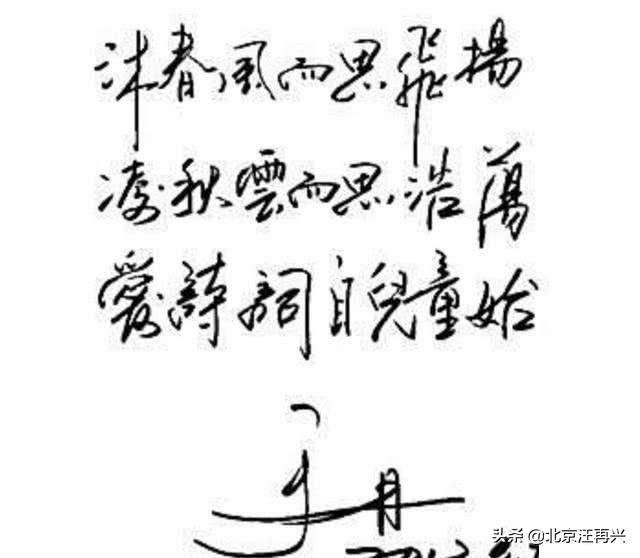 沐春風而思飛揚
凌秋雲而思浩蕩
愛詩詞自兒童始
于丹
头条 @北京汪再兴